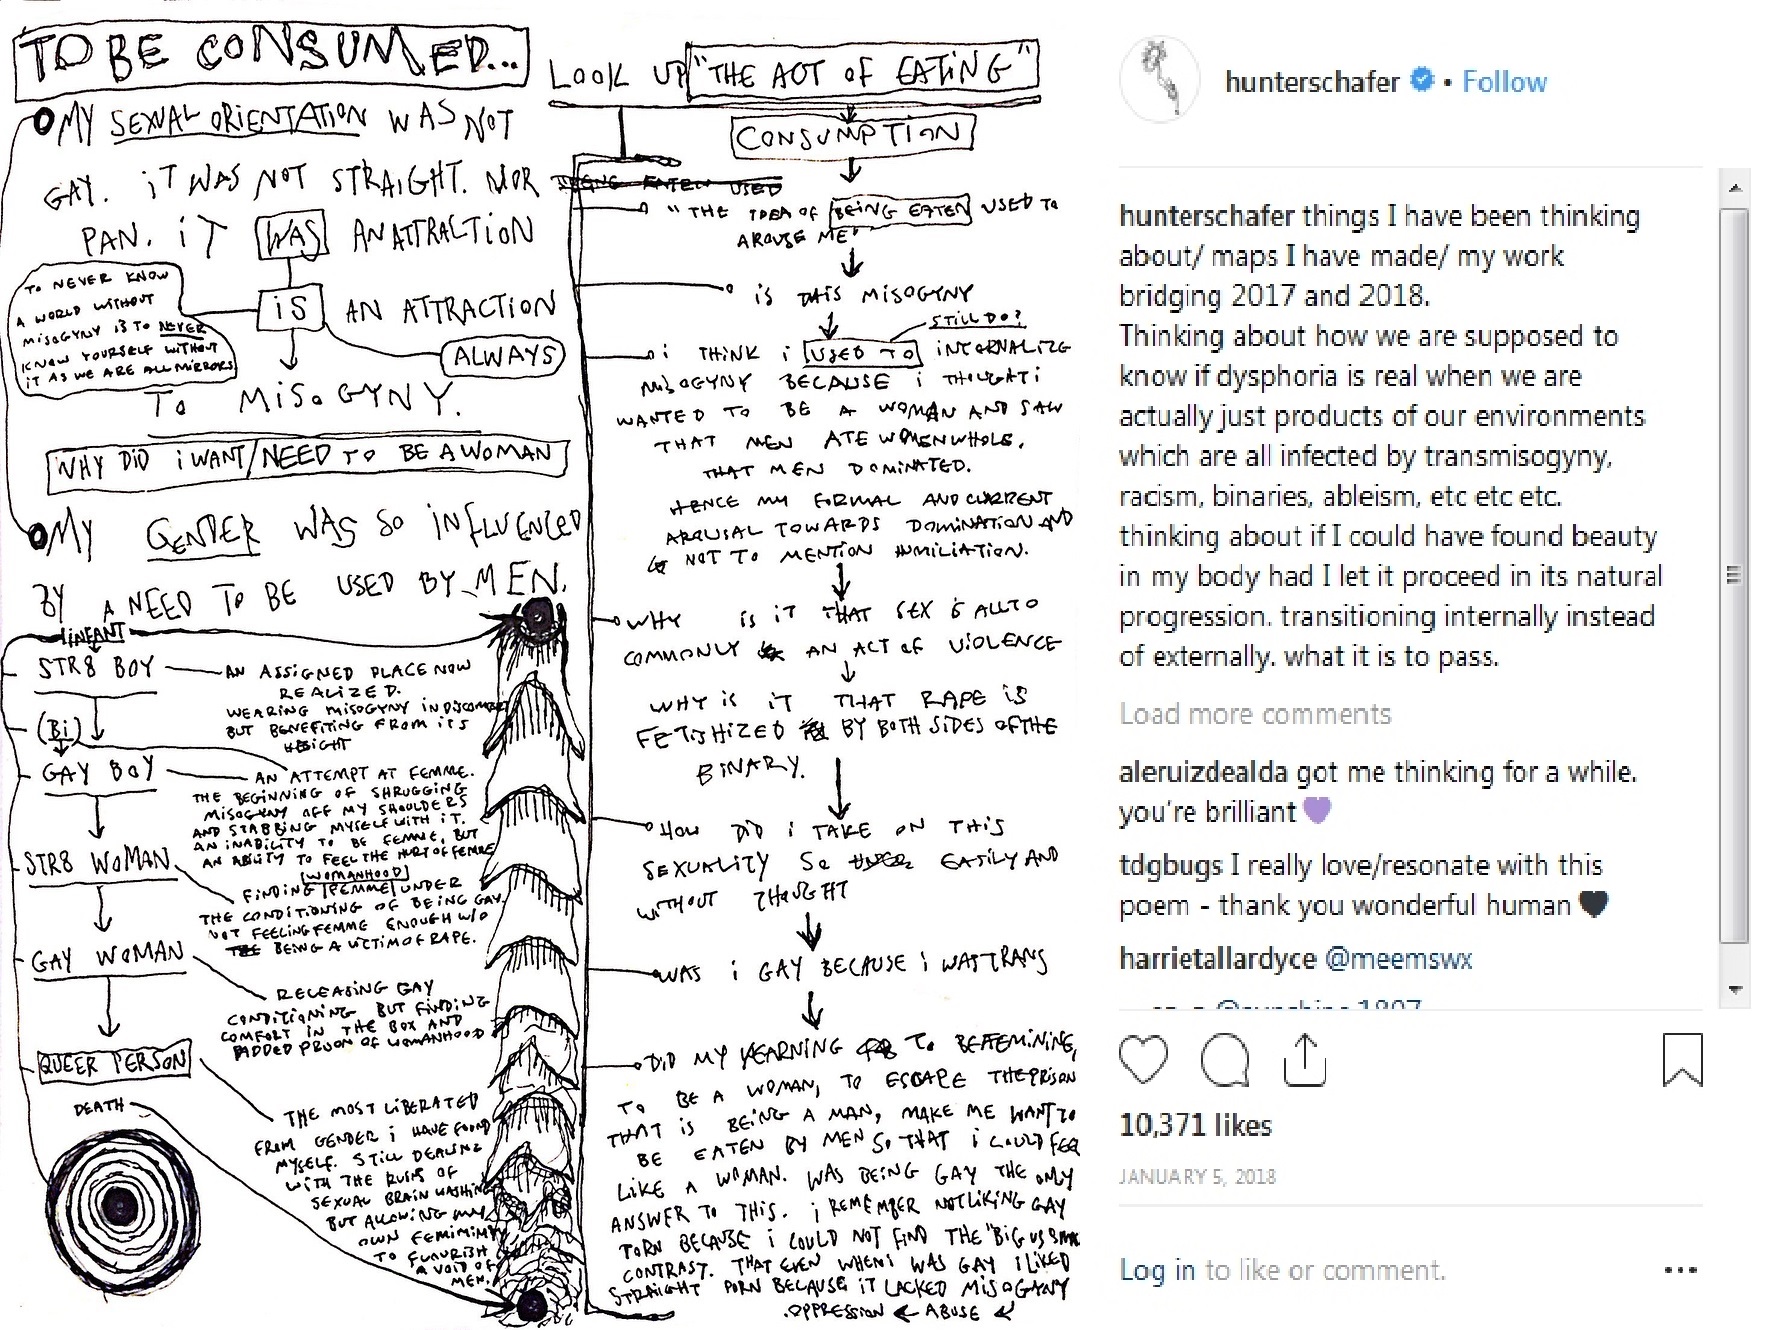 TO BE CONSUMED...
MY SEXUAL ORIENTATION WAS NOT
GAY. iT WAS NOT STRAIGHT. NOR
PAN. iT WAS AN ATTRACTION
TO NEVER KNOW
A WORLD WITHOUT
MISOGYNY IS TO NEVER
KNOW YOURSELF WITHOUT
IT AS WE ARE ALL MIRRORS
iS AN ATTRACTION
ALWAYS
TO MISOGYNY.
WHY DID i WANT/NEED TO BE A WOMAN
MY GENDER WAS SO INFLUENCED
BY A NEED TO BE USED BY MEN.
INFANT
STR8 BOY
AN ASSIGNED PLACE NOW
REALIZED.
WEARING MISOGYNY IN DISCOMFORT
BUT BENEFITING FROM ITS
WEIGHT
(Bi)
GAY BOY
AN ATTEMPT AT FEMME.
THE BEGINNING OF SHRUGGING
MISOGYNY OFF MY SHOULDERS
AND STABBING MYSELF WITH IT.
AN INABILITY TO BE FEMME, BUT
AN ABILITY TO FEEL THE HURT OF FEMME
STR8 WOMAN
WOMANHOOD
FINDING FEMME UNDER
THE CONDITIONING OF BEING GAY.
NOT FEELING FEMME ENOUGH W/O
BEING A VICTIM OF RAPE.
GAY WOMAN
RELEASING GAY
CONDITIONING BUT FINDING
COMFORT IN THE BOX AND
PADDED PRISON OF WOMANHOOD
QUEER PERSON
DEATH
THE MOST LIBERATED
FROM GENDER i HAVE FOUND
MYSELF. STILL DEALING
WITH THE RUINS OF
SEXUAL BRAIN WASHING
BUT ALLOWING MY
OWN FEMININITY
TO FLOURISH
A VOID OF
MEN.
LOOK UP "THE ACT OF EATING"
CONSUMPTION
BEING EATEN USED
"THE IDEA OF BEING EATEN USED TO
AROUSE ME"
iS THIS MISOGYNY
STILL DO?
i THINK i USED TO INTERNALIZE
MISOGYNY BECAUSE i THOUGHT i
WANTED TO BE A WOMAN AND SAW
THAT MEN ATE WOMEN WHOLE.
THAT MEN DOMINATED.
HENCE MY FORMAL AND CURRENT
AROUSAL TOWARDS DOMINATION AND
NOT TO MENTION HUMILIATION.
WHY iS iT THAT SEX IS ALL TO
COMMONLY AN ACT OF VIOLENCE
WHY iS iT THAT RAPE iS
FETISHIZED BY BOTH SIDES OF THE
BINARY.
HOW DID i TAKE ON THIS
SEXUALITY SO EASILY AND
WITHOUT THOUGHT
WAS i GAY BECAUSE i WAS TRANS
DID MY YEARNING TO BE FEMININE,
TO BE A WOMAN, TO ESCAPE THE PRISON
THAT iS BEING A MAN, MAKE ME WANT TO
BE EATEN BY MEN SO THAT i COULD FEEL
LIKE A WOMAN. WAS BEING GAY THE ONLY
ANSWER TO THIS. i REMEMBER NOT LIKING GAY
PORN BECAUSE i COULD NOT FIND THE "BIG VS SMALL
CONTRAST. THAT EVEN WHEN i WAS GAY i LIKED
STRAIGHT PORN BECAUSE IT LACKED MISOGYNY
.OPPRESSION ← ABUSE
hunterschafer • Follow
hunterschafer things I have been thinking
about/ maps I have made/ my work
bridging 2017 and 2018.
Thinking about how we are supposed to
know if dysphoria is real when we are
actually just products of our environments
which are all infected by transmisogyny,
racism, binaries, ableism, etc etc etc.
thinking about if I could have found beauty
in my body had I let it proceed in its natural
progression. transitioning internally instead
of externally. what it is to pass.
Load more comments
aleruizdealda got me thinking for a while.
you're brilliant 💜
tdgbugs I really love/resonate with this
poem - thank you wonderful human 🖤
harrietallardyce @meemswx
10,371 likes
JANUARY 5, 2018
Log in to like or comment.